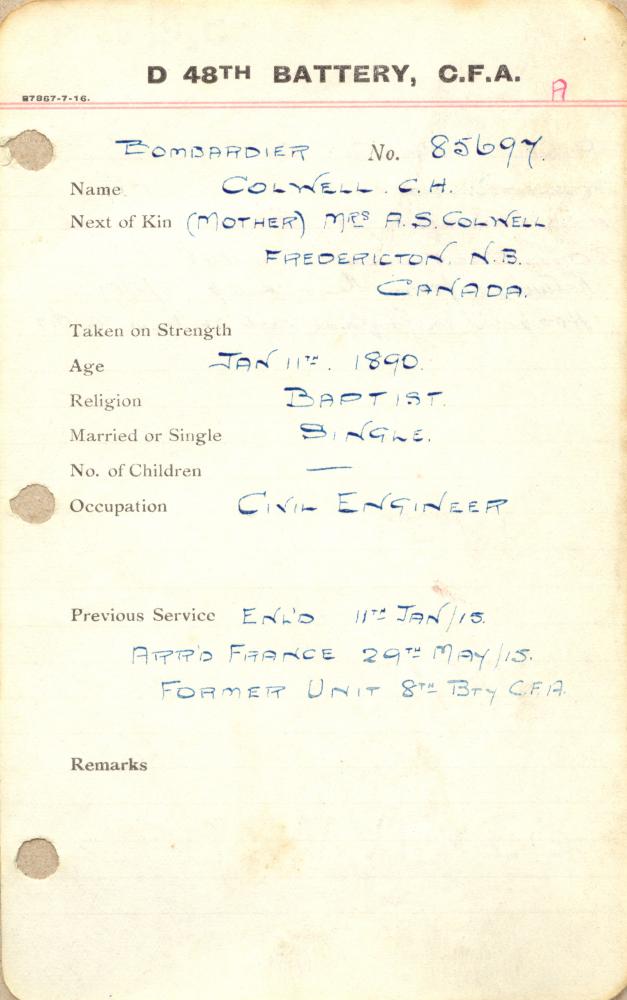 D 48TH BATTERY, C.F.A.
A
97867-7-16.
BOMBARDIER No. 85697.
Name COLWELL. C.H.
Next of Kin (MOTHER) MRS A.S. COLWELL
FREDERICTON. N.B.
CANADA.
Taken on Strength
Age JAN 11TH. 1890.
Religion BAPTIST.
Married or Single SINGLE.
No. of Children —
Occupation CIVIL ENGINEER
Previous Service ENL'D 11TH JAN/15.
ARR'D FRANCE 29TH MAY/15.
FORMER UNIT 8TH BTY C.F.A.
Remarks